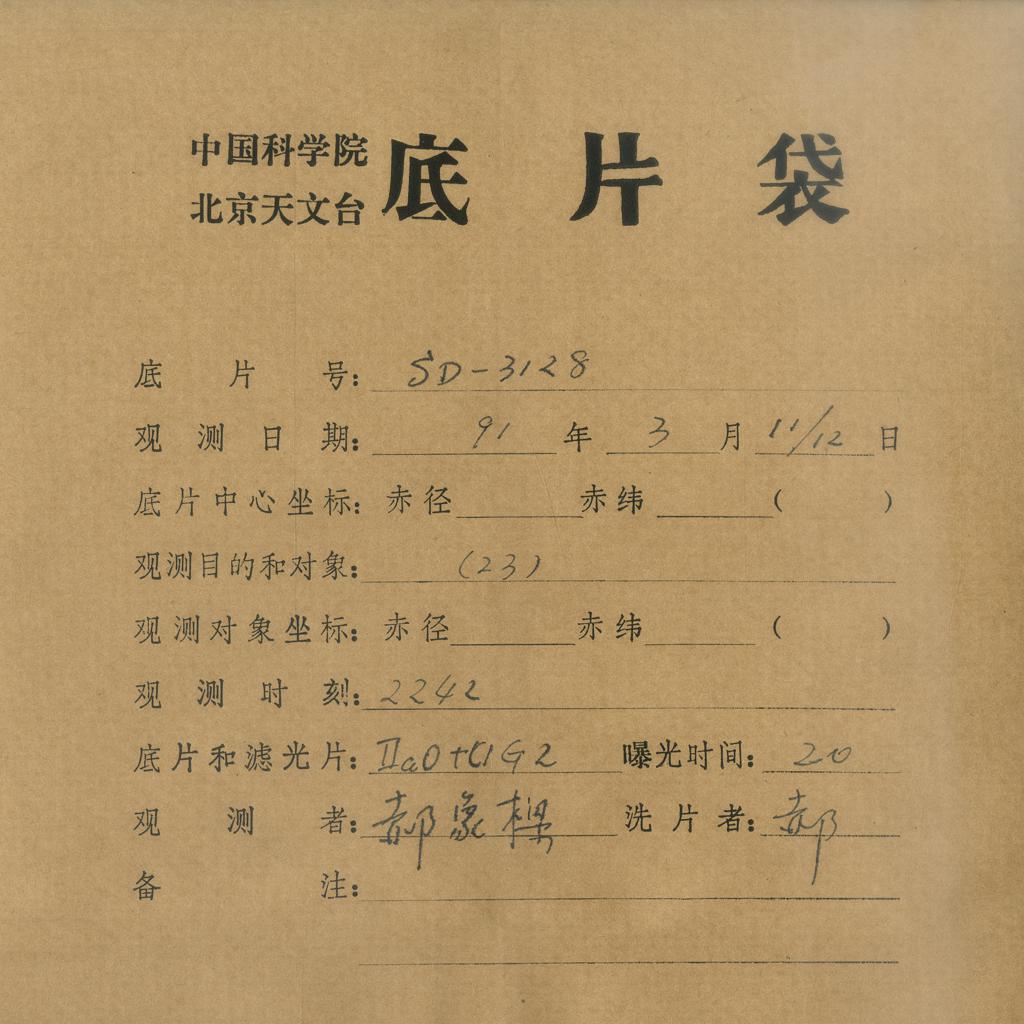 中国科学院
北京天文台
底片袋
底片号: SD-3128
观测日期: 91 年 3 月 11/12 日
底片中心坐标: 赤径 赤纬 ( )
观测目的和对象: (23)
观测对象坐标: 赤径 赤纬 ( )
观测时刻: 2242
底片和滤光片: IIaO+GG2 曝光时间: 20
观测者: 郝象樑 洗片者: 郝
备注: